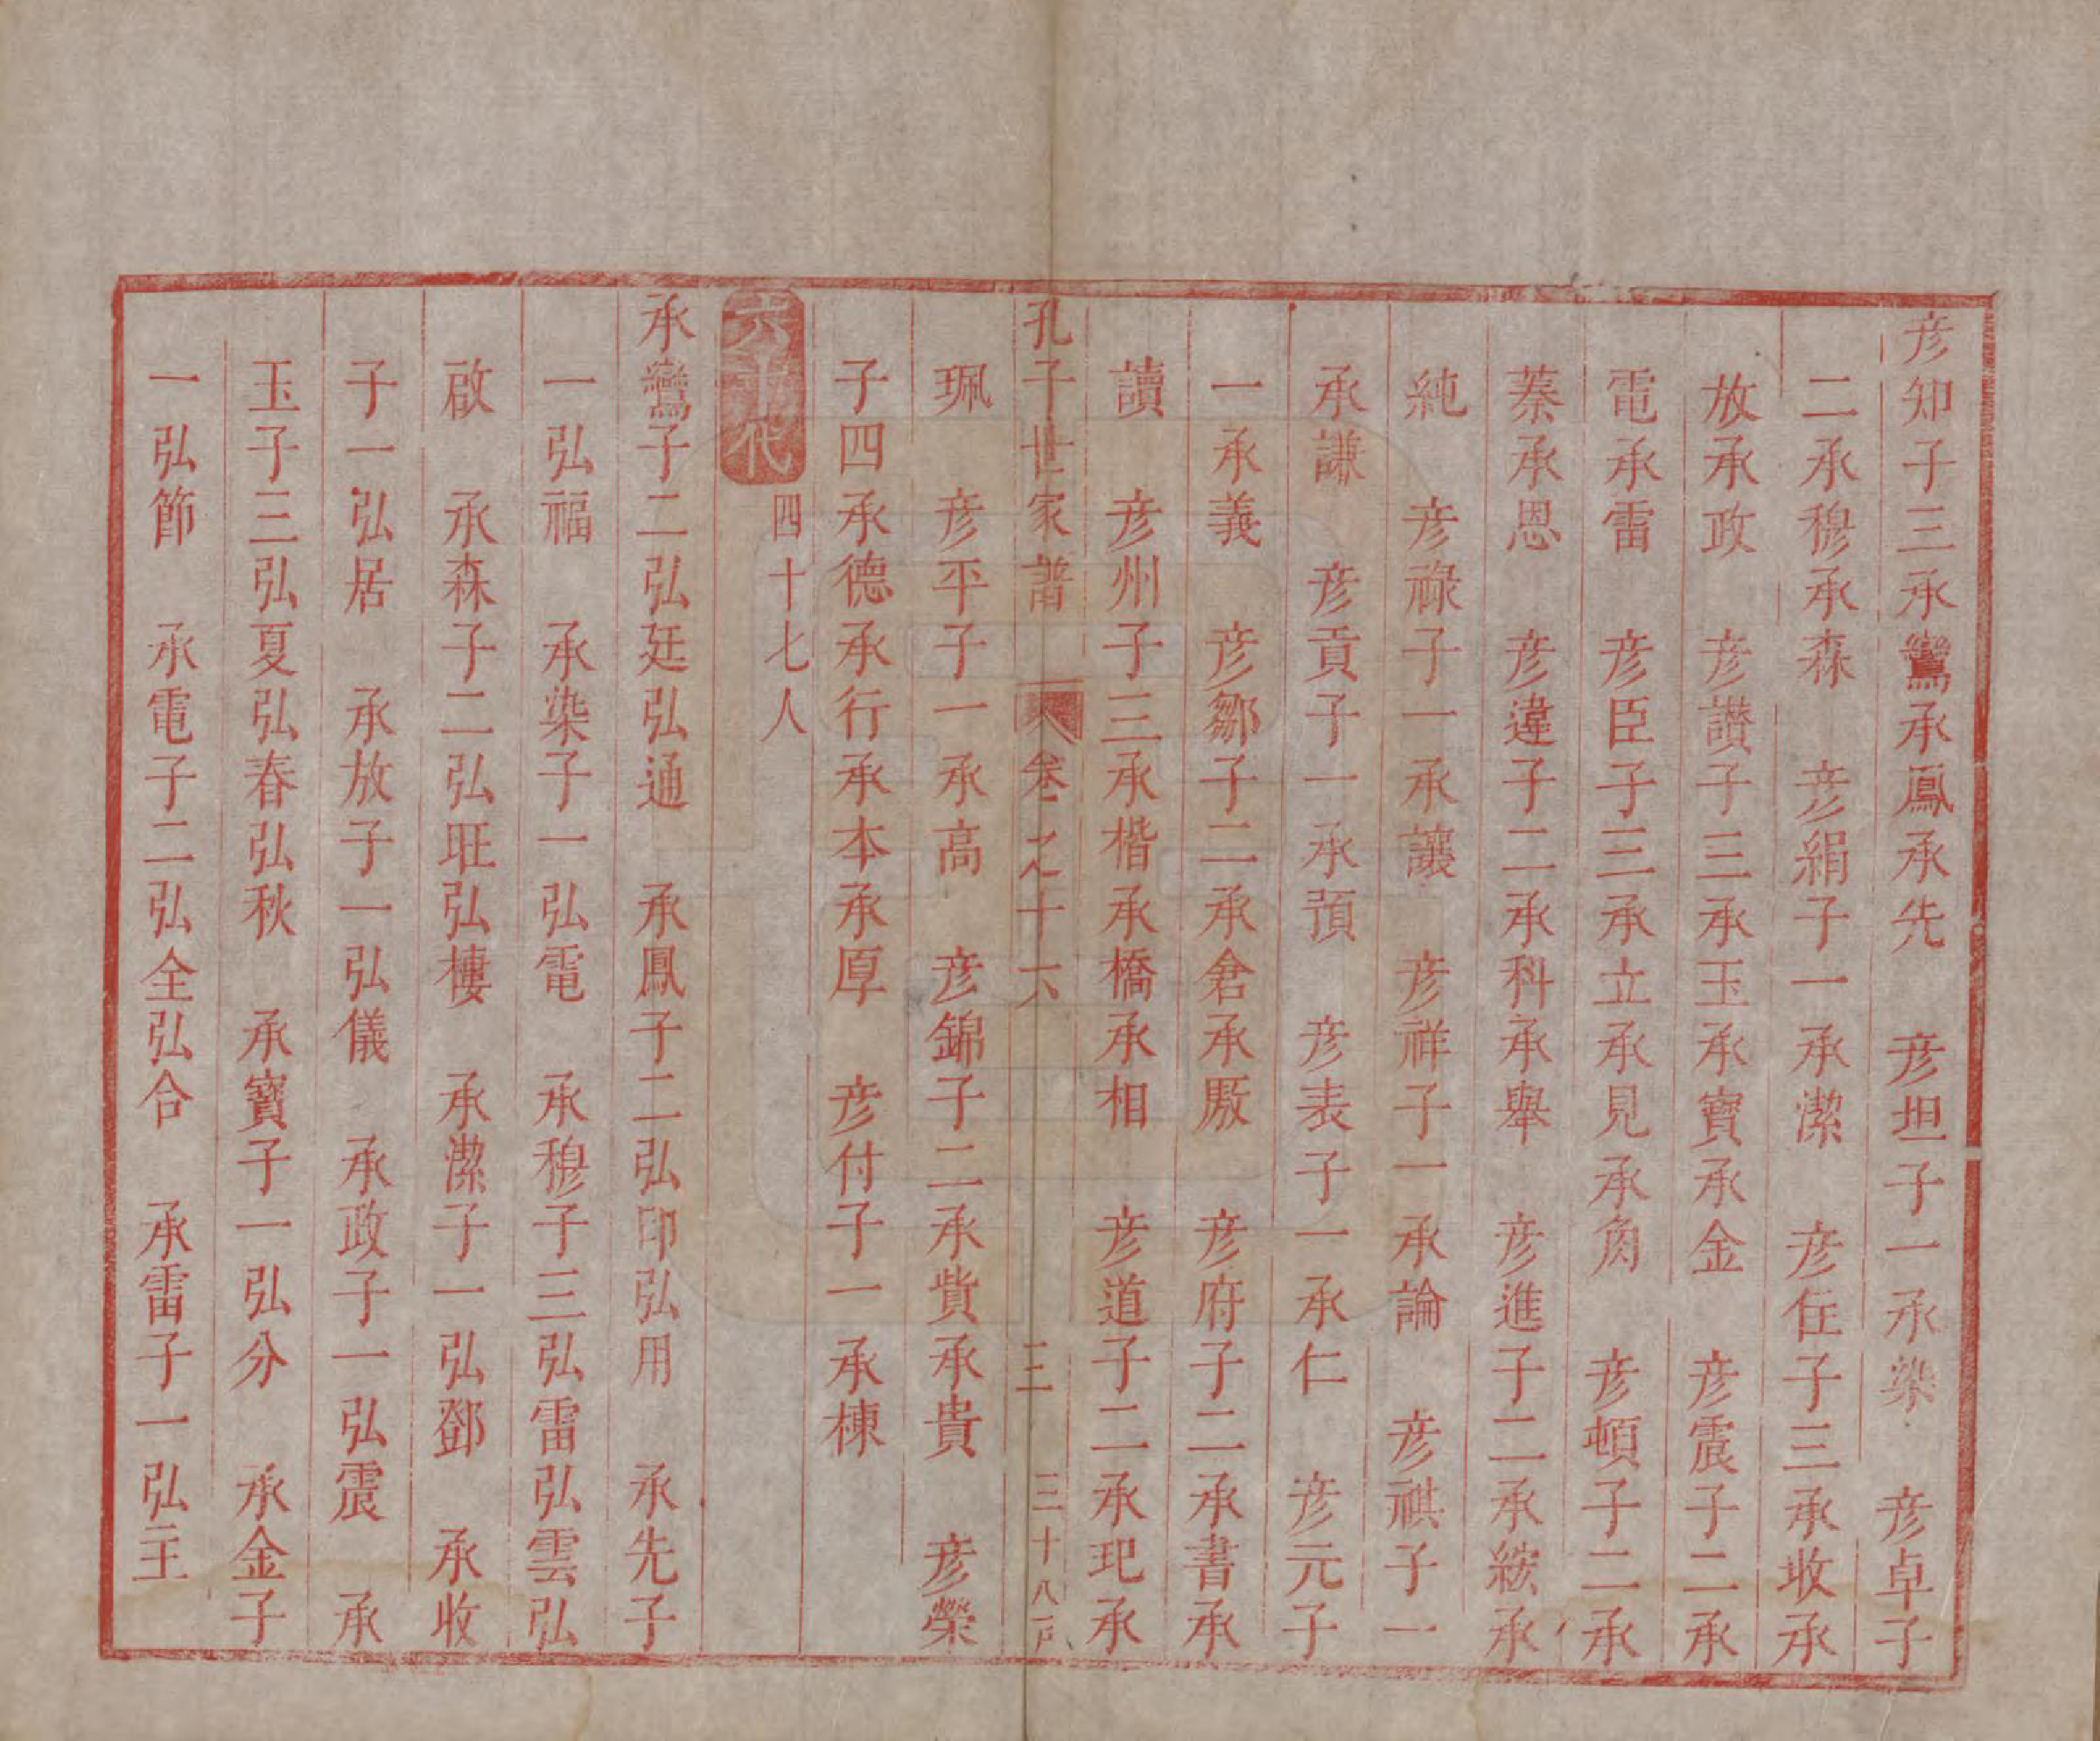 彦知子三承鸞承鳳承先　彦坦子一承染　彦卓子
二承穆承森　彦絹子一承潔　彦任子三承收承
放承政　彦讃子三承玉承寶承金　彦震子二承
電承雷　彦臣子三承立承見承角　彦頓子二承
蓁承恩　彦違子二承科承舉　彦進子二承綋承
純　彦祿子一承讓　彦祥子一承論　彦祺子一
承謙　彦貢子一承預　彦表子一承仁　彦元子
一承義　彦鄒子二承倉承厫　彦府子二承書承
讀　彦州子三承楷承橋承相　彦道子二承玘承
孔子世家譜　卷一之十六　三　三十八戶
珮　彦平子一承高　彦錦子二承貲承貴　彦榮
子四承德承行承本承厚　彦付子一承棟
六十代　四十七人
承鸞子二弘廷弘通　承鳳子二弘印弘用　承先子
一弘福　承染子一弘電　承穆子三弘雷弘雲弘
啟　承森子二弘旺弘樓　承潔子一弘鄧　承收
子一弘居　承放子一弘儀　承政子一弘震　承
玉子三弘夏弘春弘秋　承寶子一弘分　承金子
一弘節　承電子二弘全弘合　承雷子一弘主